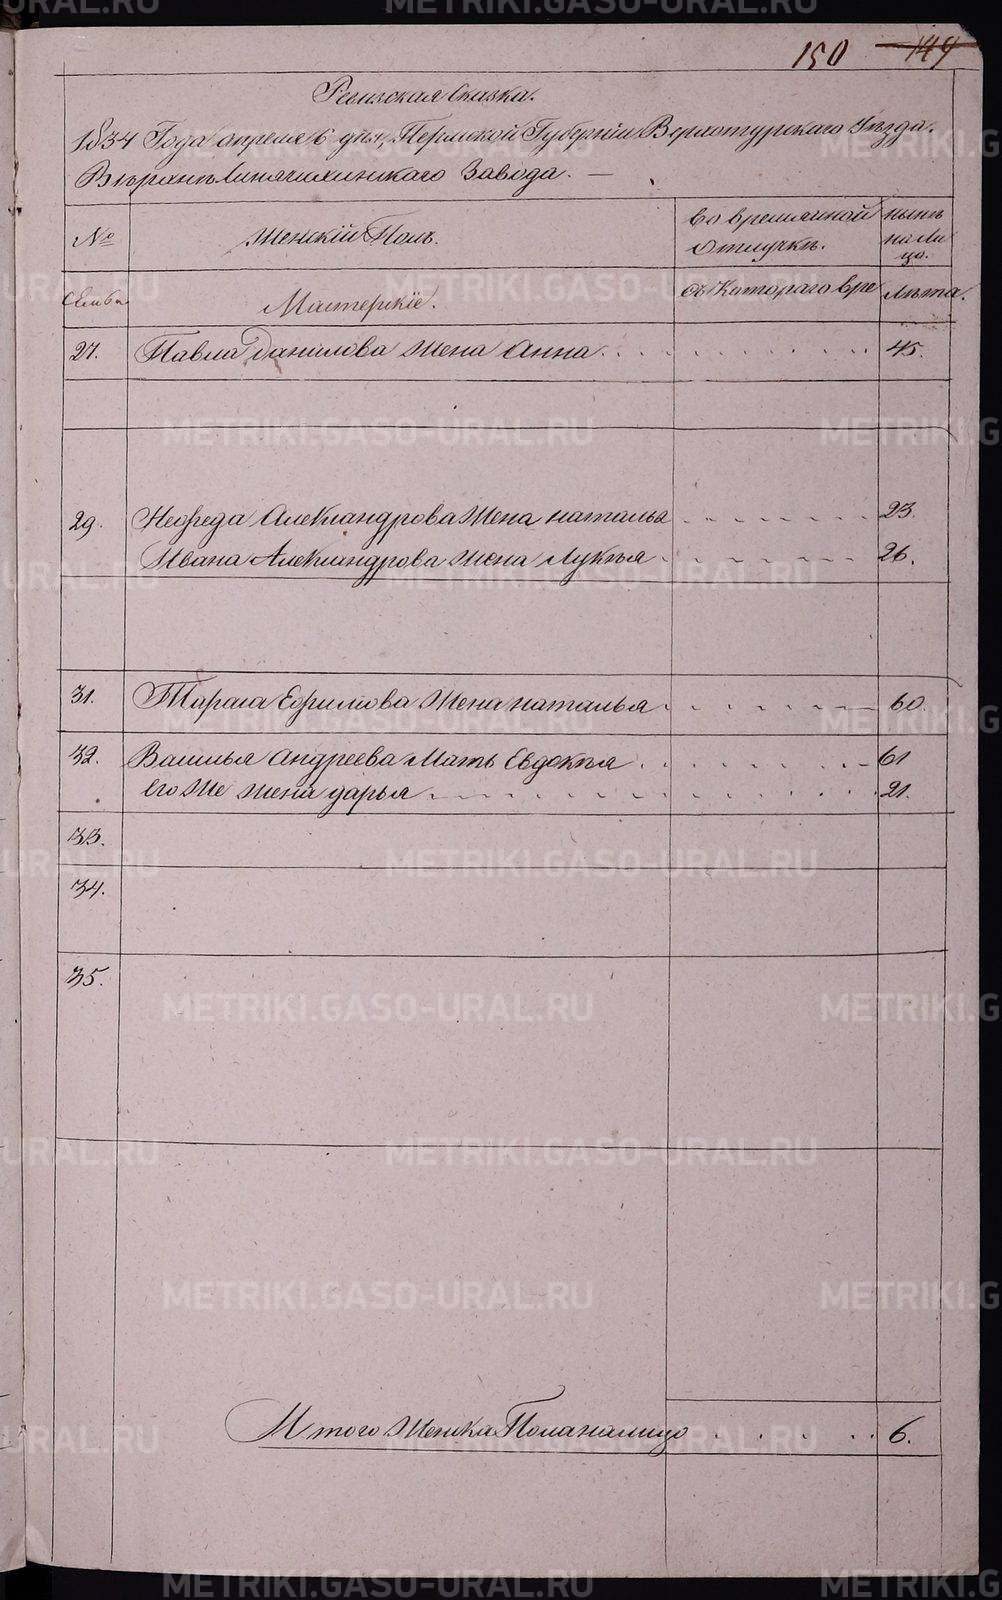 150 149
Ревизская Сказка.
1834 Года апреля 6 дня, Пермской Губернии Верхотурского Уѣзда.
Завода. —
№ Женскій Полъ. во временной отлучкѣ. нынѣ на лицо.
Семьи Мастерскіе. съ Котораго вре Лѣта.
27. Павла Данилова Жена Анна 45.
29. Неофеда Александрова Жена наталья 23.
Ивана Александрова Жена Лукѣя 26.
31. Тараса Ефимова Жена наталья 60.
32. Василья Андреева Мать Евдокѣя 61
его Же Жена дарья 21.
33.
34.
35.
Итого Женска Пола налицо 6.
METRIKI.GASO-URAL.RU